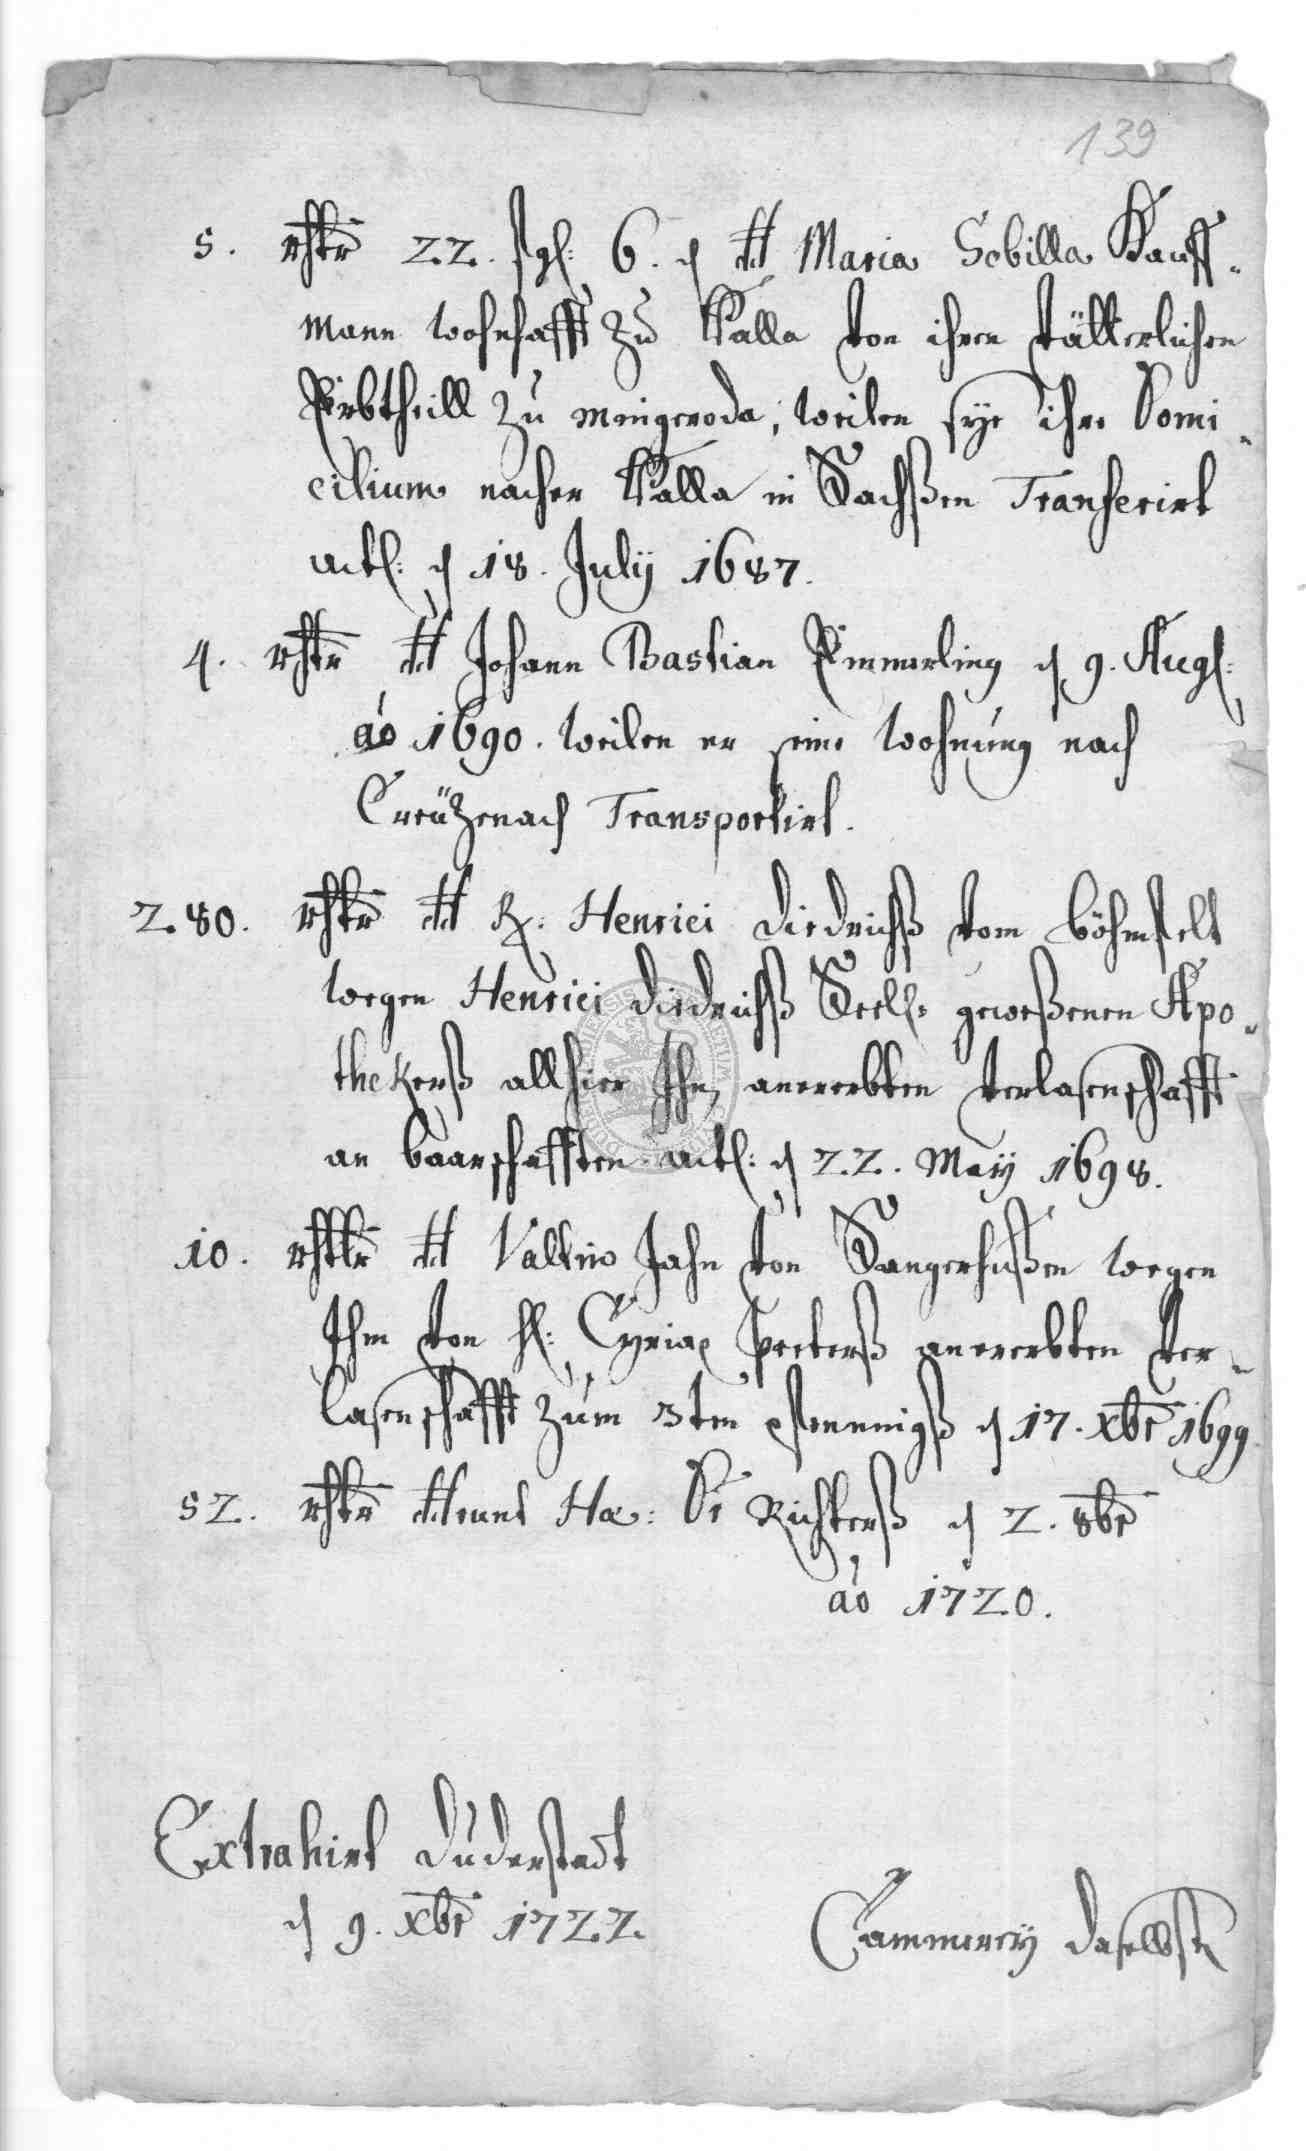 139
5. rthlr 22. sgl: 6. d dt Maria Sebilla Kauff-
mann wohnhafft zu Halla von ihren vätterlichen
Erbtheill zu mengeroda, weilen sye ihre Domi-
cilium nacher Halla in Sachßen Transferirt
actl: d 18. July 1687.
4. rthlr dt Johann Bastian Emmerling d 9. Augl:
ao 1690. weilen er seine wohnung nach
Creützenach Transportirt.
280. rthlr dt R. Henrici Diedrichß vom böhmfelt
wegen Henrici Diedrichß Seel: geweßenen Apo-
thekerß allhier Ihm anererbten verlasenschafft
an baarschafften actl: d 22. May 1698.
10. rthlr dt Valtin Jahn von Sangerhußen wegen
Ihm von H: Cyriax peterß anererbten ver-
lasenschafft zum 3ten pfennigß d 17. xbr 1699
52. rthlr Hr: Dr Richterß d 2. 8br
ao 1720.
Extrahirt Duderstadt
d 9. xbr 1722.
Cammerey daselbst